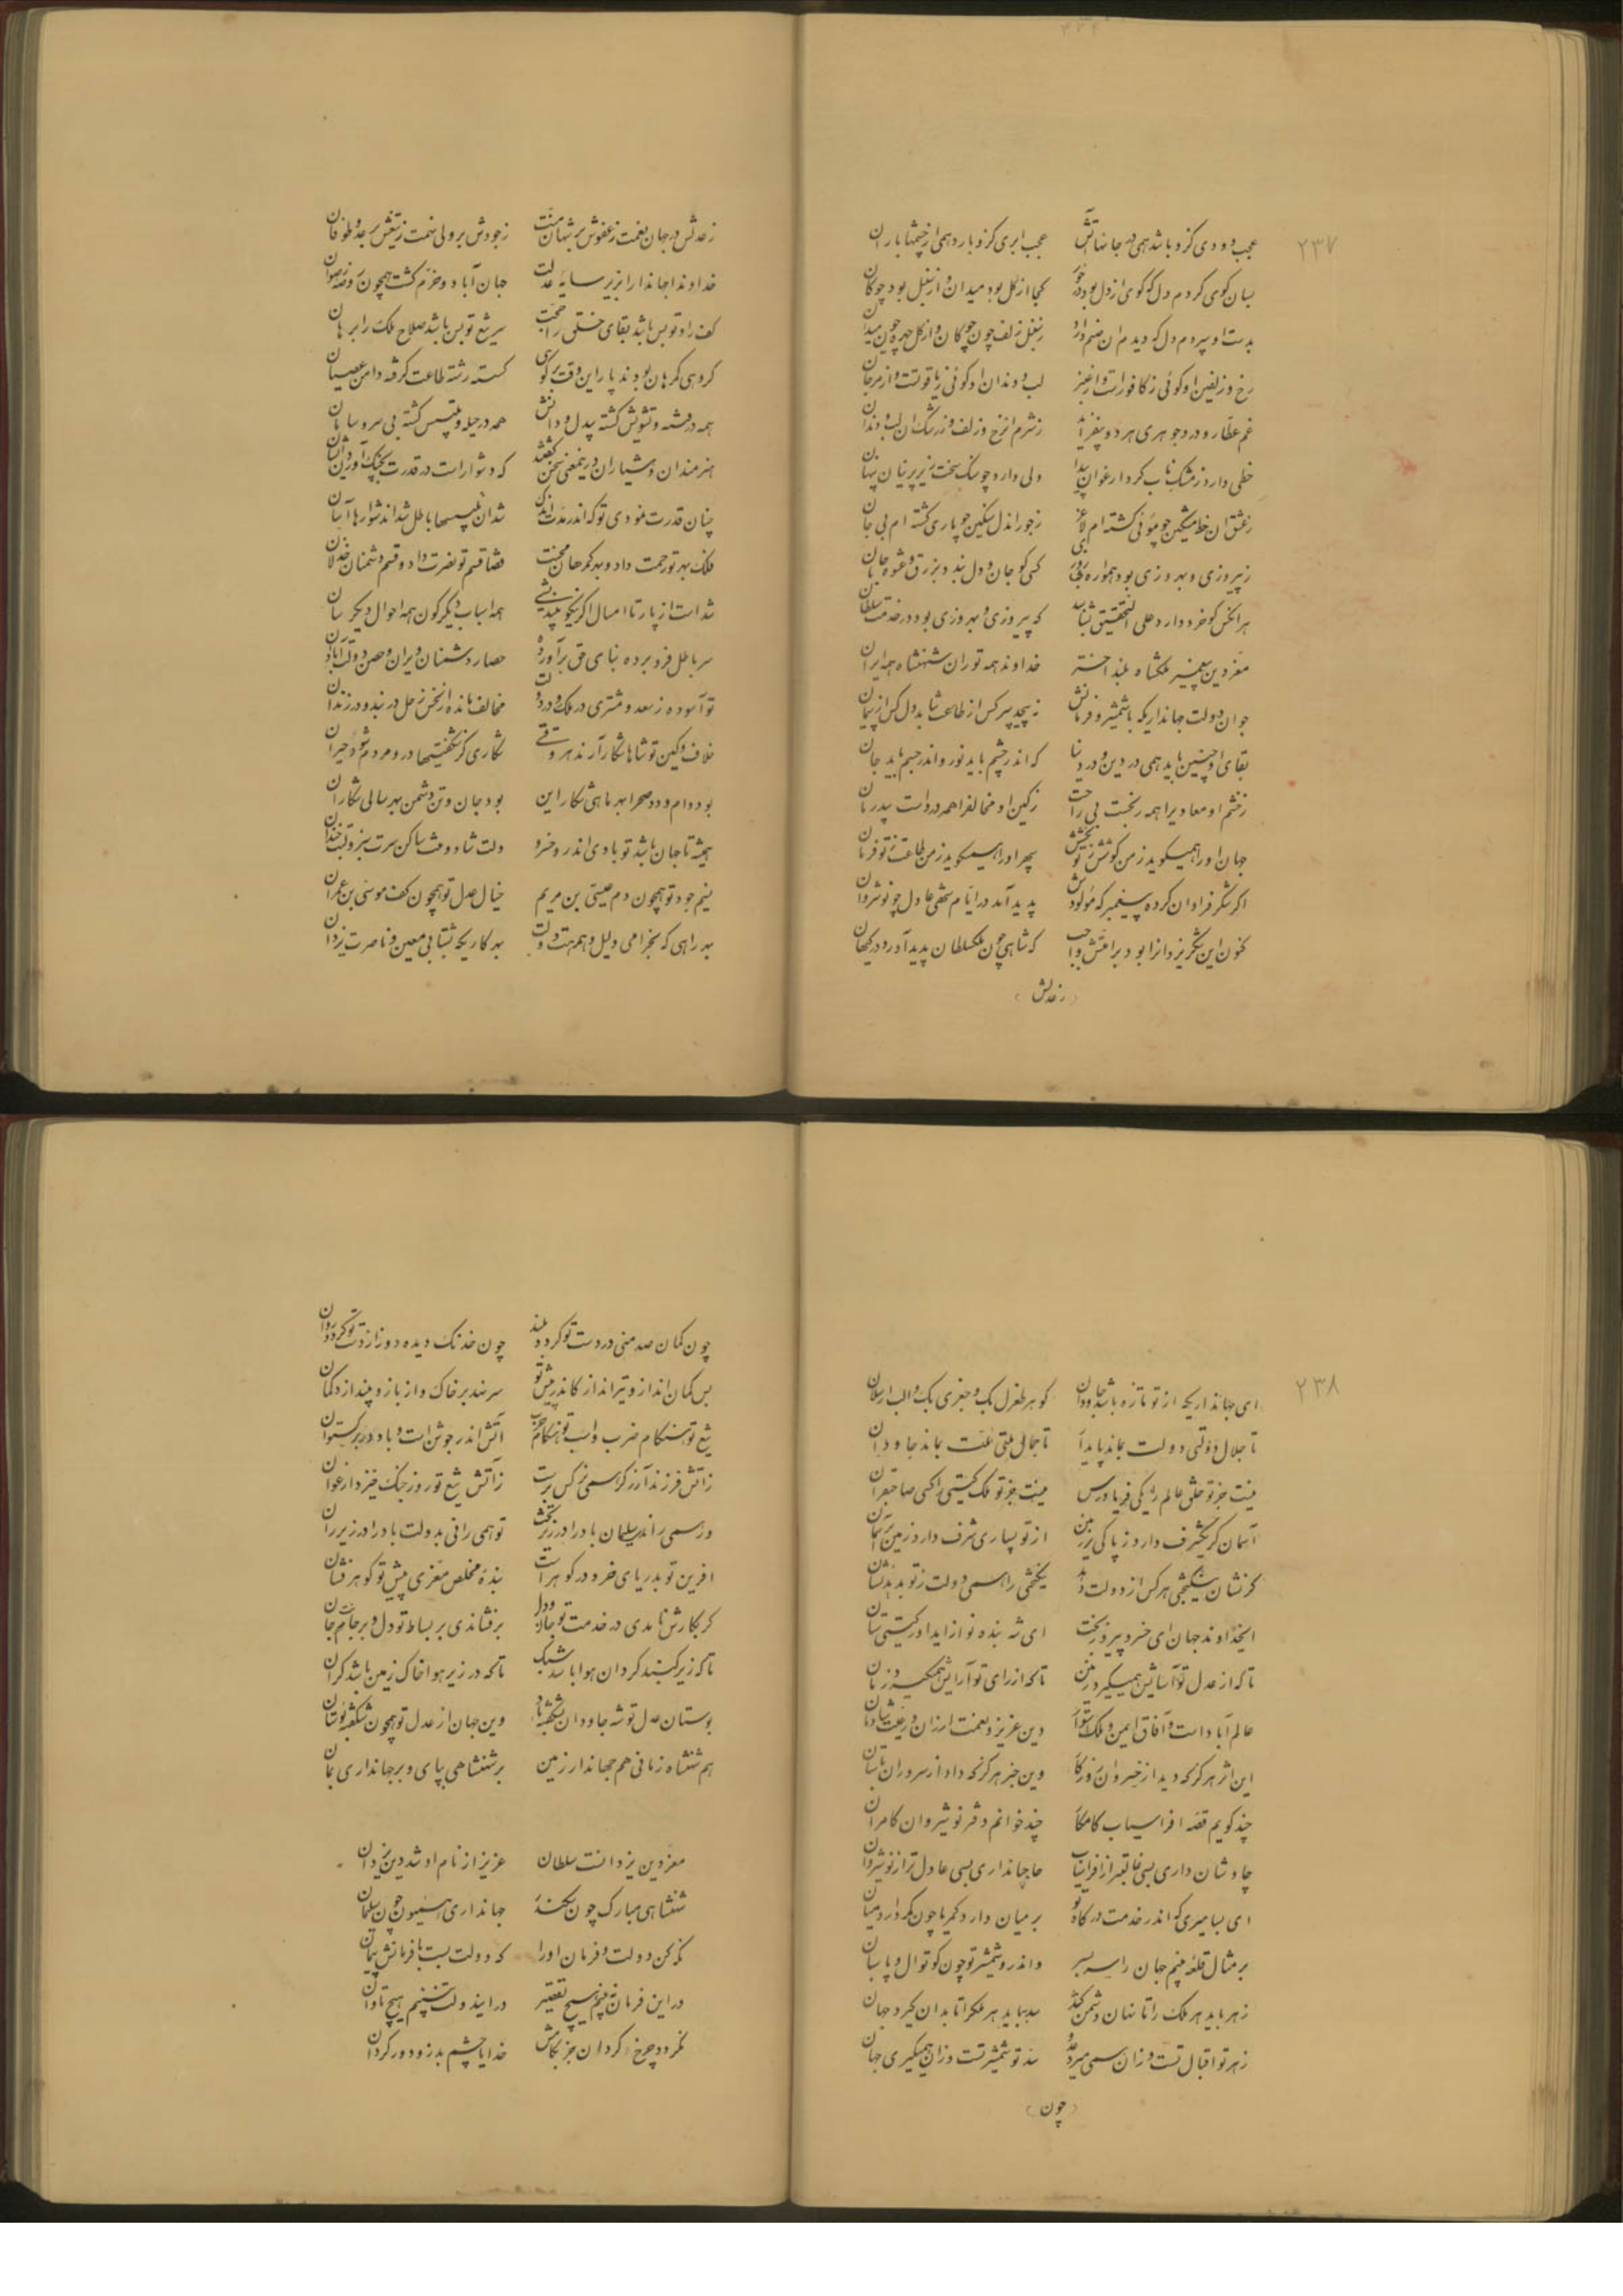 ۲۳۷
عجب دودی کزو باشد همی در جانها آتش عجب ابری کزو بارد همی از چشمها باران
بسان کوی کردم دل که کوی از دل بود در خور کجا از کل بود میدان و از سنبل بود چوکان
بدست او سپردم دل که دیدم ان صنم دارد ز سنبل زلف چون چوکان و از کل چهره چون میدان
رخ و زلفین او کوئی ز کافور است و از عنبر لب و دندان او کوئی ز یاقوتست و از مرجان
غم عطار و درد جوهری هر دو بیفزاید ز شرم انرخ و زلف و ز رشک ان لب و دندان
خطی دارد ز مشک ناب کرد ارغوان پیدا دلی دارد چو سنک سخت زیر پرنیان پنهان
ز عشق ان خط مشکین چو موئی کشته ام لاغر ز جور اندل سنکین چو یاری کشته ام بی جان
ز پیروزی و بهروزی بود همواره بی روزی کسی کو جان و دل بندد بزرق و عشوه جانان
هر انکس کو خرد دارد علی التحقیق بشناسد که پیروزی و بهروزی بود در خدمت سلطان
معز دین پیغمبر ملکشاه بلند اختر خداوند همه توران شهنشاه همه ایران
جوان دولت جهانداریکه با شمشیر و فرمانش نه پیچد سر کس از طاعت نتابد دل کس از پیمان
بقای او چنین باید همی در دین و در دنیا که اندر چشم باید نور و اندر جسم باید جان
ز خشم او معادیرا همه رنجست بی راحت ز کین او مخالفرا همه درد است بیدرمان
جهان او را همیکوید ز من کوشش ز تو بخشش سپهر او را همیکوید ز من طاعت ز تو فرمان
اکر شکر فراوان کرده پیغمبر که مولودش پدید آمد در ایام شهی عادل چو نوشروان
کنون این شکر یزدانرا بود بر امتش واجب که شاهی چون ملکسلطان پدید آورد در کیهان
(زعدلش)
زعدلش در جهان نعمت ز عفوش بر شهان منت ز جودش بر ولی نعمت ز تیغش بر عدو طوفان
خداوندا جهاندارا بزیر سایه عدلت جهان آباد و خرم کشت همچون روضه رضوان
کف راد تو بس باشد بقای خلق را حجت سر تیغ تو بس باشد صلاح ملک را برهان
کروهی کمرهان بودند پار این وقت سرکوی کسسته رشته طاعت کرفته دامن عصیان
همه در فتنه و تشویش کشته بیدل و دانش همه در حیله و تلبیس کشته بی سر و سامان
هنرمندان و هشیاران در ینمعنی سخن کفتند که دشوار است در قدرت بچنک آوردن آسان
چنان قدرت نمودی تو که اندر مدت اندک شد ان تلبیسها باطل شد اندشوارها آسان
فلک بهر تو رحمت داد و بهر کمرهان محنت قضا قسم تو نصرت داد و قسم دشمنان خذلان
شد است از پار تا امسال اکر نیکو بیندیشی همه اسباب دیکر کون همه احوال دیکر سان
سر باطل فرو برده بنای حق برآورده حصار دشمنان ویران و حصن دولت آبادان
تو آسوده ز سعد و مشتری در ملک و در دولت مخالف مانده از نحس زحل در بند و در زندان
خلاف و کین تو شاها شکار آرند هر وقتی شکاری کز شکفتیها در و مردم شود حیران
بود دام و دد صحرا بهر ماهی شکار این بود جان و تن دشمن بهر سالی شکار ان
همیشه تا جهان باشد تو بادی اندر و خسرو دلت شاد و کفت ساکن سرت سبز و لبت خندان
نسیم جود تو همچون دم عیسی بن مریم خیال عدل تو همچون کف موسی بن عمران
بهر راهی که بخرامی دلیل و همرهت دولت بهر کاریکه بشتابی معین و ناصرت یزدان
۲۳۸
ای جهانداریکه از تو تازه باشد جاودان کوهر طغرل بک و جغری بک و الب ارسلان
تا جلال دولتی دولت بماند پایدار تا جمال ملتی ملت بماند جاودان
نیست جز تو خلق عالم را یکی فریادرس نیست جز تو ملک کیتی را کسی صاحبقران
آسمان کر یکشرف دارد ز پاکی بر زمین از تو بسیاری شرف دارد زمین بر آسمان
کر نشان نیکبختی هر کس از دولت دهد نیکبختی را همی دولت ز تو بدهد نشان
ایخداوند جهان ای خسرو پیروز بخت ای شه بنده نواز ایداور کیتی ستان
تا که از عدل تو آسایش همیکیرد زمین تا که از رای تو آرایش همیکیرد زمان
عالم آباد است و آفاق ایمن و ملک استوار دین عزیز و نعمت ارزان و رعیت شادمان
این اثر هرکز که دید از خسروان روزکار وین خبر هرکز که داد از سروران باستان
چند کویم قصه افراسیاب کامکار چند خوانم دفتر نوشیروان کامران
چاوشان داری بسی غالبتر از افراسیاب حاجبانداری بسی عادل تر از نوشیروان
ای بسا میری که اندر خدمت درکاه تو بر میان دارد کمر یا چون کمر دارد میان
بر مثال قلعه بینم جهان را سر بسر واندرو شمشیر تو چون کوتوال و پاسبان
زهر باید هر ملک را تا نهان دشمن کشد سد بباید هر ملکرا تا بدان کیرد جهان
زهر تو اقبال تست و زان همی میرد عدو سد تو شمشیر تست و زان همیکیری جهان
(چون)
چون کمان صد منی در دست تو کردد بلند چون خدنک دیده دوز از دست تو کردد روان
بس کمان انداز و تیر انداز کاندر پیش تو سر نهد بر خاک و از بازو بیندازد کمان
تیغ تو هنکام ضرب و اسب تو هنکام حرب آتش اندر جوشن است و باد در برکستوان
زاتش فرزند آزر کر همی نرکس برست زآتش تیغ تو روز جنک خیزد ارغوان
ور همی راند سلیمان باد را در زیر تخت تو همی رانی بدولت باد را در زیر ران
افرین تو بدریای خرد در کوهر است بنده مخلص معزی پیش تو کوهر فشان
کر بکارش نامدی در خدمت تو جان و دل برفشاندی بر بساط تو دل و بر جامت جان
تا که زیر کنبد کردان هوا باشد سبک تا که در زیر هوا خاک زمین باشد کران
بوستان عدل تو شه جاودان شکفته باد وین جهان از عدل تو همچون شکفته بوستان
هم شهنشاه زمانی هم جهاندار زمین بر شهنشاهی بپای و بر جهانداری بمان
معز دین یزدانست سلطان عزیز از نام او شد دین یزدان
شهنشاهی مبارک چون سکندر جهانداری همیون چون سلیمان
نکه کن دولت و فرمان او را که دولت بست با فرمانش پیمان
در این فرمان نبینم هیچ تقصیر در ایندولت نبینم هیچ تاوان
نکردد چرخ کردان جز بکامش خدایا چشم بد زو دور کردان